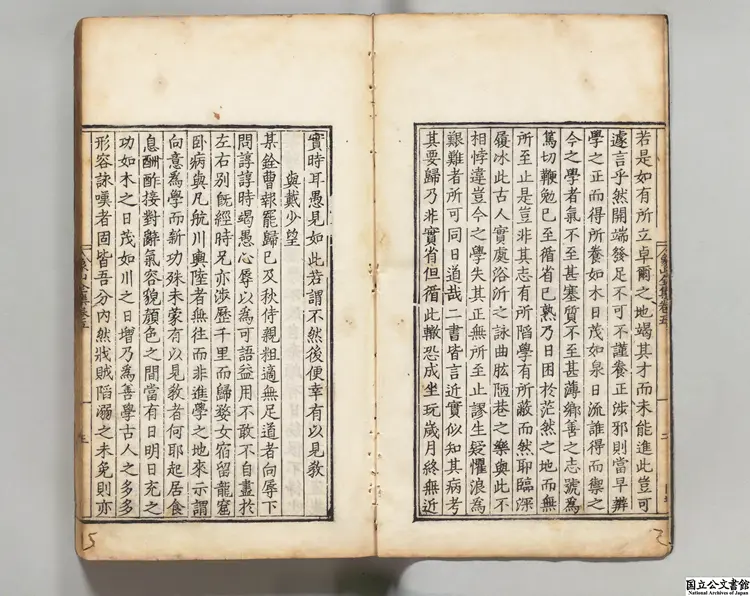 若是如有所立卓爾之地竭其才而未能進此豈可
遽言乎然開端發足不可不謹養正涉邪則當早辨
學之正而得所養如木日茂如泉日流誰得而禦之
今之學者氣不至甚塞質不至甚薄鄉善之志號為
篤切鞭勉已至循省已熟乃日困於茫然之地而無
所至止是豈非其志有所陷學有所蔽而然耶臨深
履冰此古人實處浴沂之詠曲肱陋巷之樂與此不
相悖違豈今之學失其正無所至止謬生疑懼浪為
艱難者所可同日道哉二書皆言近實似知其病考
其要歸乃非實省但循此轍恐成坐玩歲月終無近
實時耳愚見如此若謂不然後便幸有以見教
與戴少望
某銓曹報罷歸已及秋侍親粗適無足道者向辱下
問諄諄時竭愚心辱以為可語益用不敢不自盡於
左右別旣經時足亦涉歷千里而歸婺女宿留龍窟
卧病與凡航川輿陸者無往而非進學之地來示謂
向意為學而新功殊未蒙有以見教者何耶起居食
息酬酢接對辭氣容貌顏色之間當有日明日充之
功如木之日茂如川之日增乃為善學古人之多多
形容詠嘆者固皆吾分內然戕賊陷溺之未免則亦
象山全集卷五
二
国立公文書館
National Archives of Japan